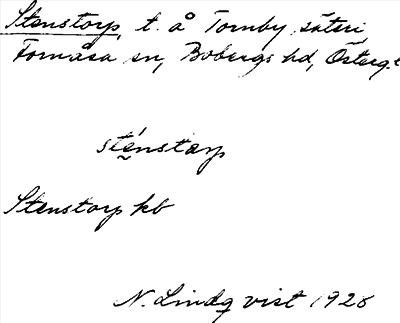 Stenstorp, t. å Tornby säteri,
Fornåsa sn, Bobergs hd, Österg.
sténstæp
Stenstorp kb
N. Lindqvist 1926